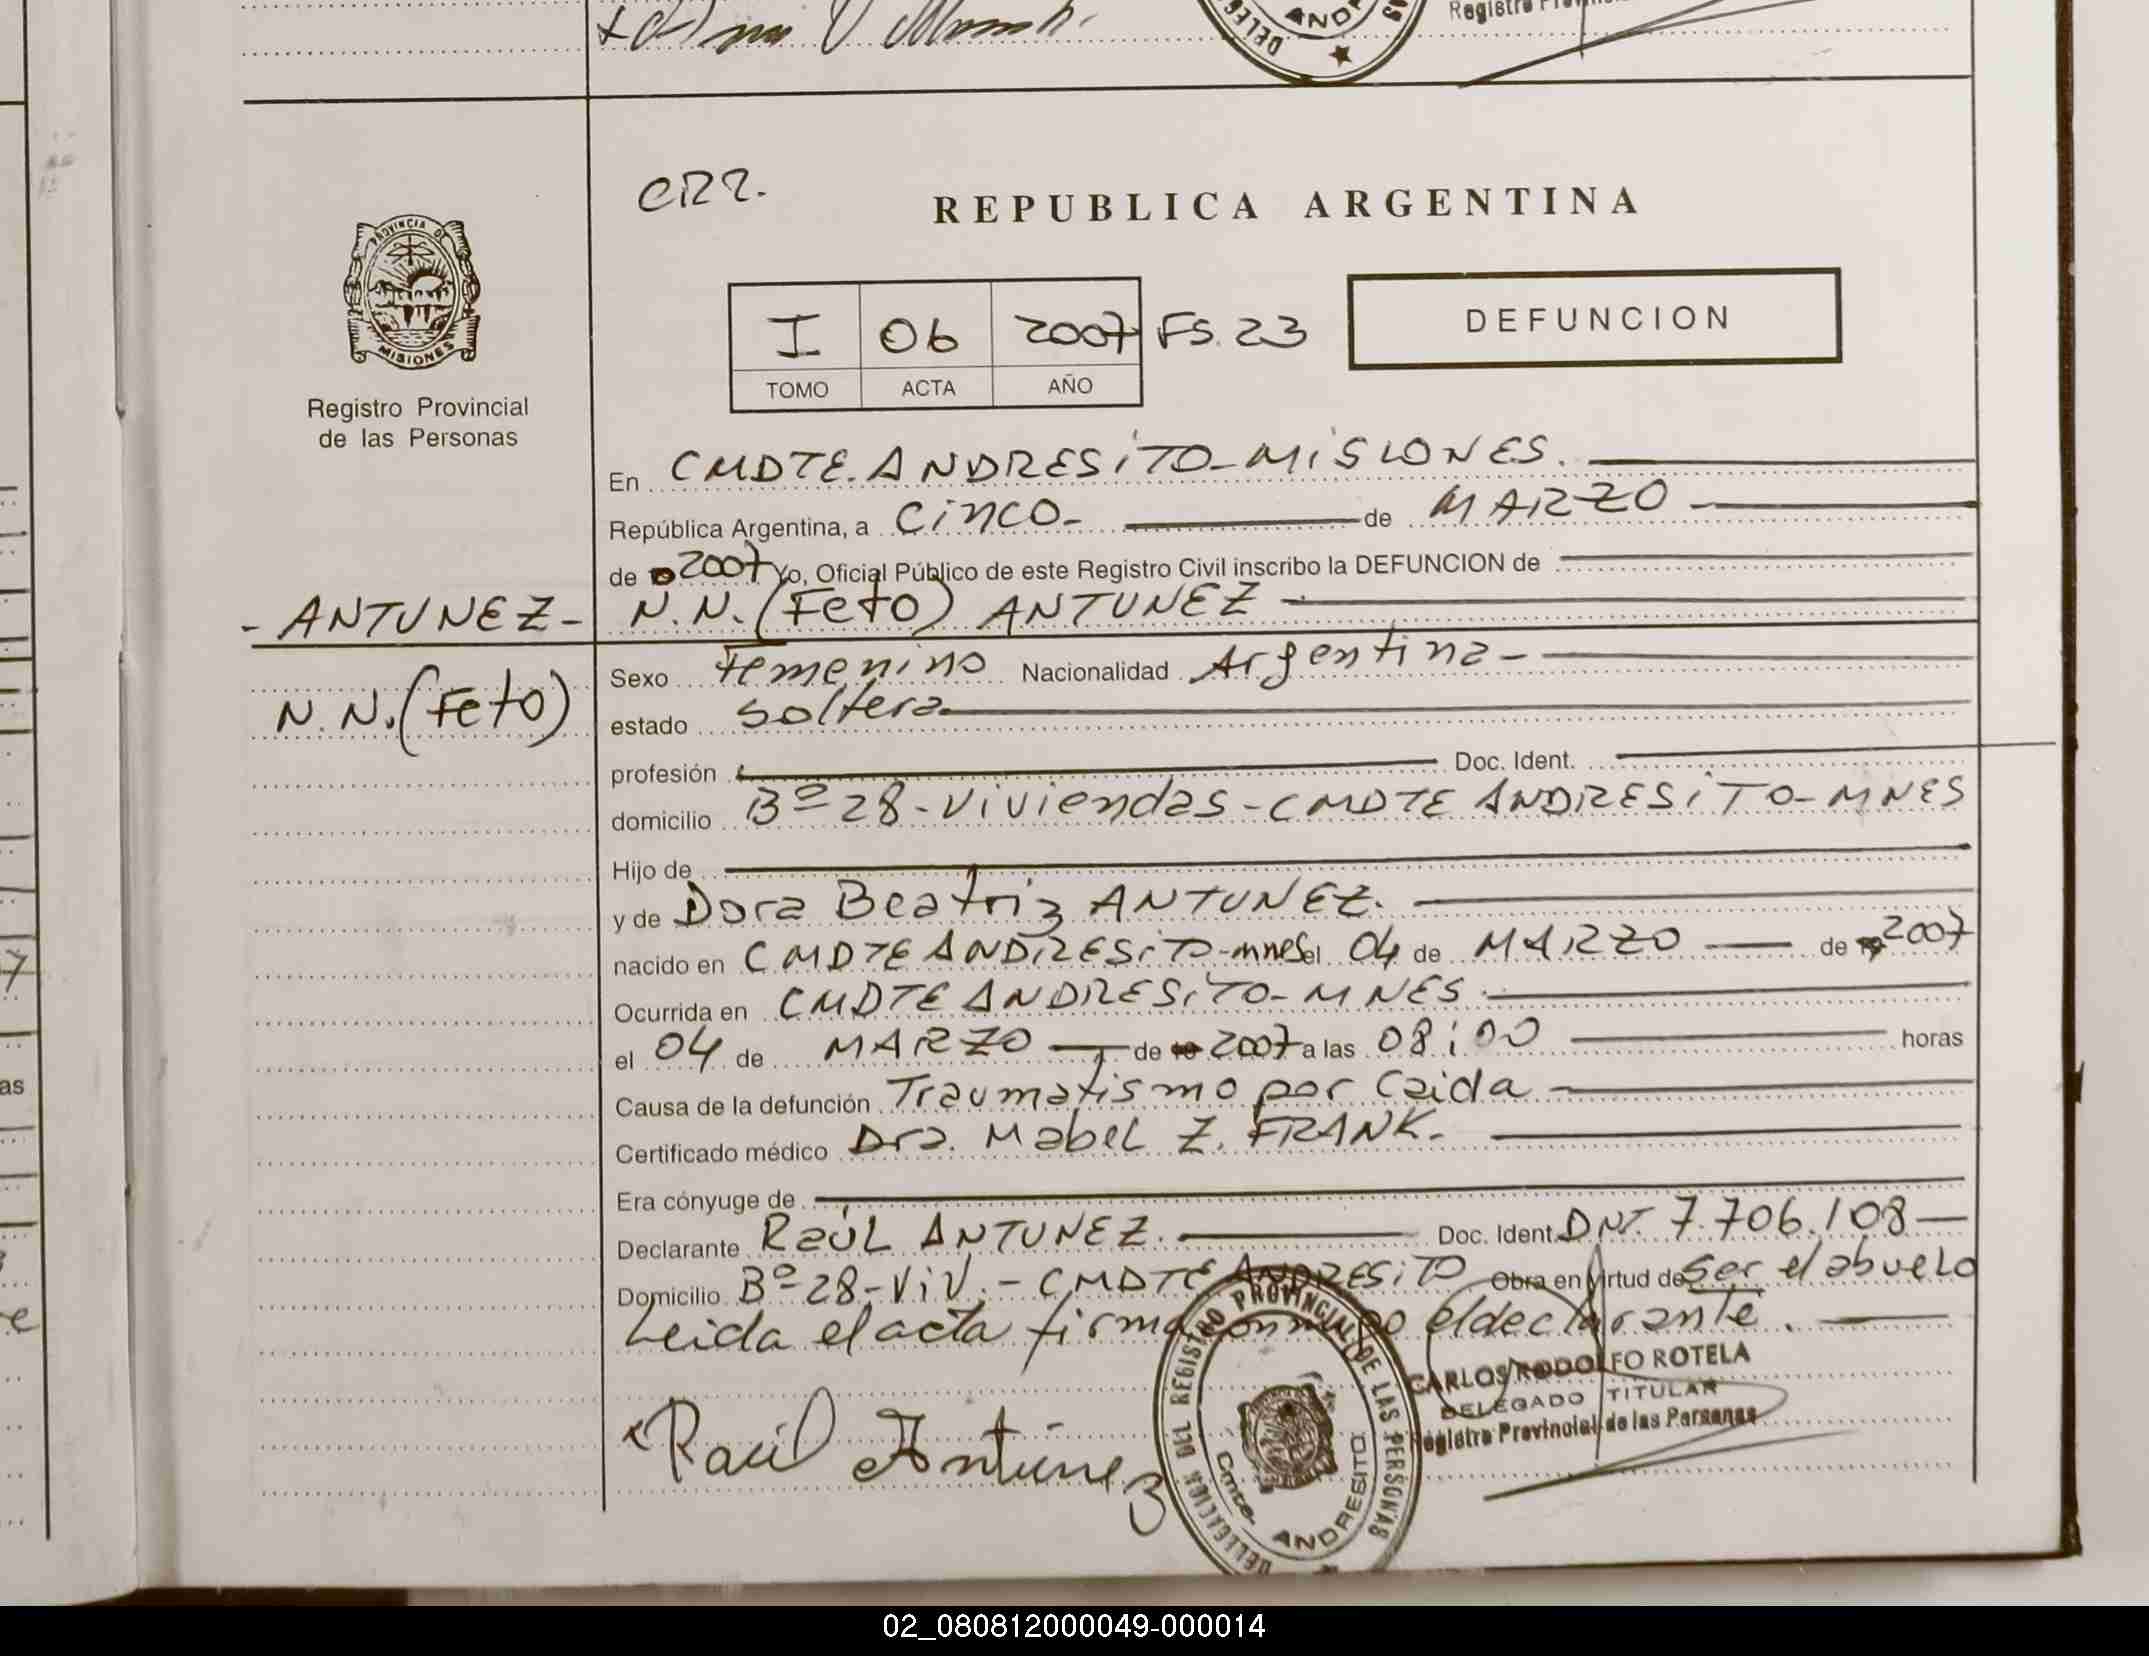 DELEG
ANDR
AS
Registro Provinci
CRR.
REPUBLICA ARGENTINA
PROVINCIA DE
MISIONES
I 06 2007 FS. 23
TOMO ACTA AÑO
DEFUNCION
Registro Provincial
de las Personas
En CMDTE. ANDRESiTO-MiSIONES.
República Argentina, a CiNCO- de MARZO
de 2007 Yo, Oficial Público de este Registro Civil inscribo la DEFUNCION de
- ANTUNEZ - N.N. (Feto) ANTUNEZ
N.N. (Feto)
Sexo Femenino Nacionalidad Argentina -
estado soltera
profesión Doc. Ident.
domicilio Bº 28 - Viviendas - CMDTE ANDRESiTO - MNES
Hijo de
y de Dora Beatriz ANTUNEZ.
nacido en CMDTE ANDRESiTO-mnes el 04 de MARZO de 2007
Ocurrida en CMDTE ANDRESiTO- MNES.
el 04 de MARZO de 2007 a las 08:00 horas
Causa de la defunción Traumatismo por Caida
Certificado médico Dra. Mabel Z. FRANK.
Era cónyuge de
Declarante Raúl ANTUNEZ. Doc. Ident. DNI. 7.706.108
Domicilio Bº 28 - ViV. - CMDTE ANDRESiTO Obra en virtud de ser el abuelo
Leida el acta firma conmigo el declarante.
CARLOS RODOLFO ROTELA
DELEGADO TITULAR
Registro Provincial de las Personas
Raúl Antunez
DELEGACION DEL REGISTRO PROVINCIAL DE LAS PERSONAS
Cmte. ANDRESITO
7
as
e
02_080812000049-000014